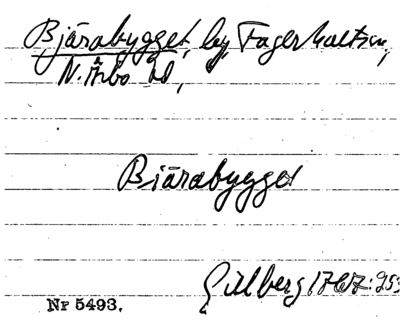 Bjärabygget, by, Fagerhultsn,
N. Åsbo hd,
Bjärabygget
Gillberg 1767: 253
Nr 5493.